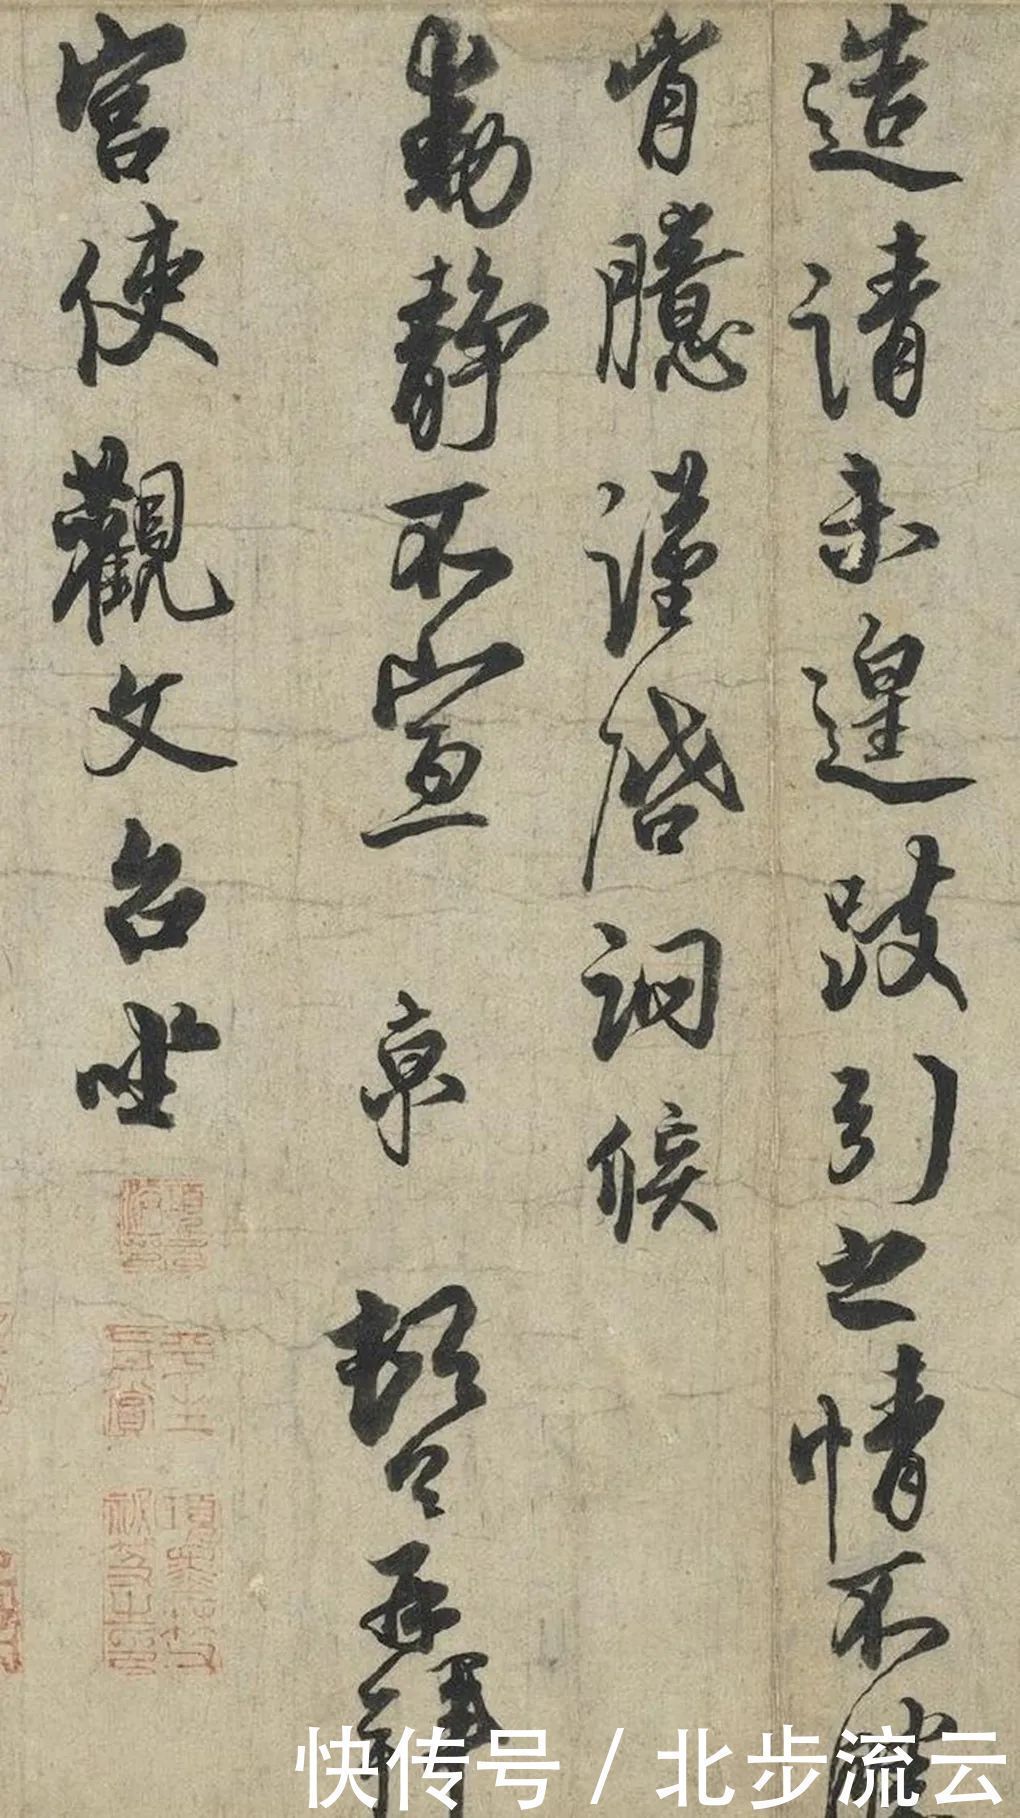 造请未遑跂引之情不勝
胷臆謹啓詞候
動靜不宣 京 頓首再拜
宫使觀文台坐
快传号/北步流云